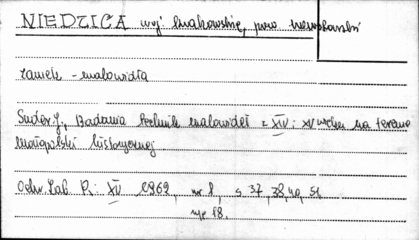 NIEDZICA woj. krakowskie, pow. nowotarski
zamek - malowidła
Suder J., Badania technik malowideł z XIV i XV wieku na terenie
małopolski historycznej
Ochr. Zab. R. XV 1969, nr 1, s. 37, 38, 40, 51
ryc 18.